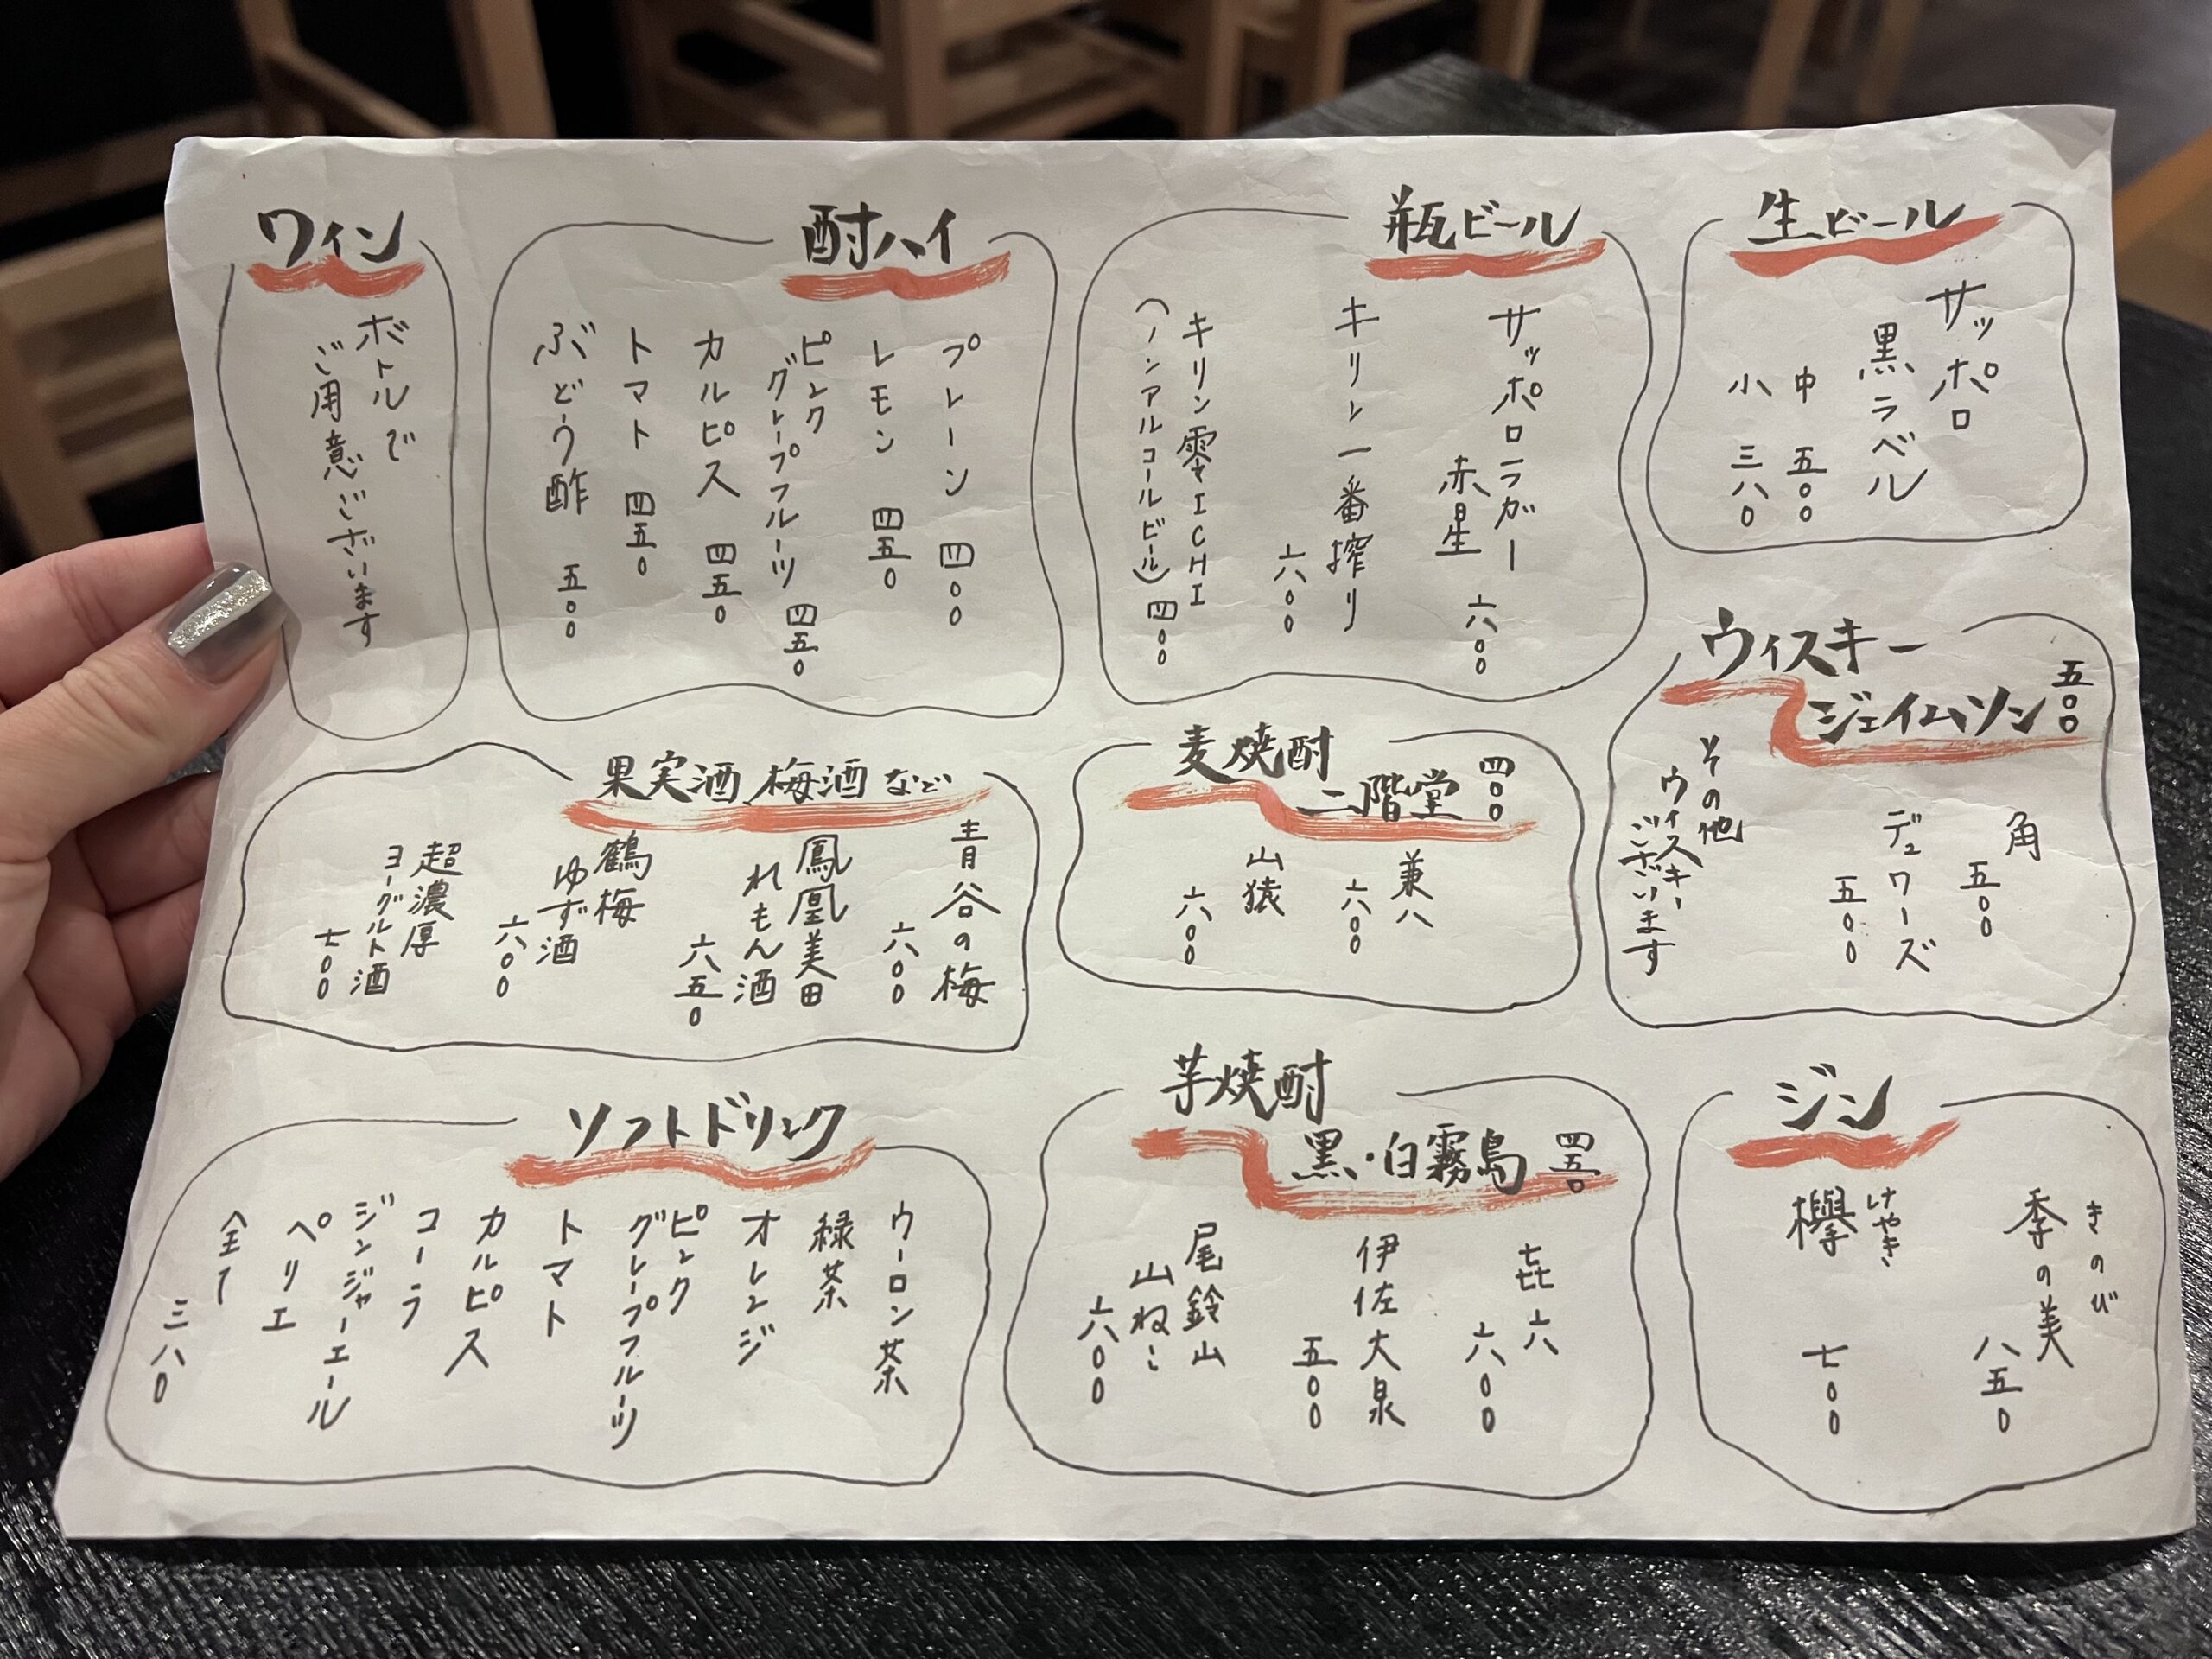 生ビール
サッポロ
黒ラベル
中 五〇〇
小 三八〇
瓶ビール
サッポロラガー
赤星
六〇〇
キリン一番搾り
六〇〇
キリン零ICHI
(ノンアルコールビール) 四〇〇
酎ハイ
プレーン 四〇〇
レモン 四五〇
ピンク
グレープフルーツ 四五〇
カルピス 四五〇
トマト 四五〇
ぶどう酢 五〇〇
ワイン
ボトルで
ご用意ございます
ウィスキー
ジェイムソン 五〇〇
角
五〇〇
デュワーズ
五〇〇
その他
ウィスキー
ございます
麦焼酎
二階堂 四〇〇
兼八
六〇〇
山猿
六〇〇
果実酒 梅酒 など
青谷の梅
六〇〇
鳳凰美田
れもん酒
六五〇
鶴梅
ゆず酒
六〇〇
超濃厚
ヨーグルト酒
七〇〇
ジン
きのび
季の美
八五〇
けやき
欅
七〇〇
芋焼酎
黒・白霧島 四五〇
㐂六
六〇〇
伊佐大泉
五〇〇
尾鈴山
山ねこ
六〇〇
ソフトドリンク
ウーロン茶
緑茶
オレンジ
ピンク
グレープフルーツ
トマト
カルピス
コーラ
ジンジャーエール
ペリエ
全て
三八〇